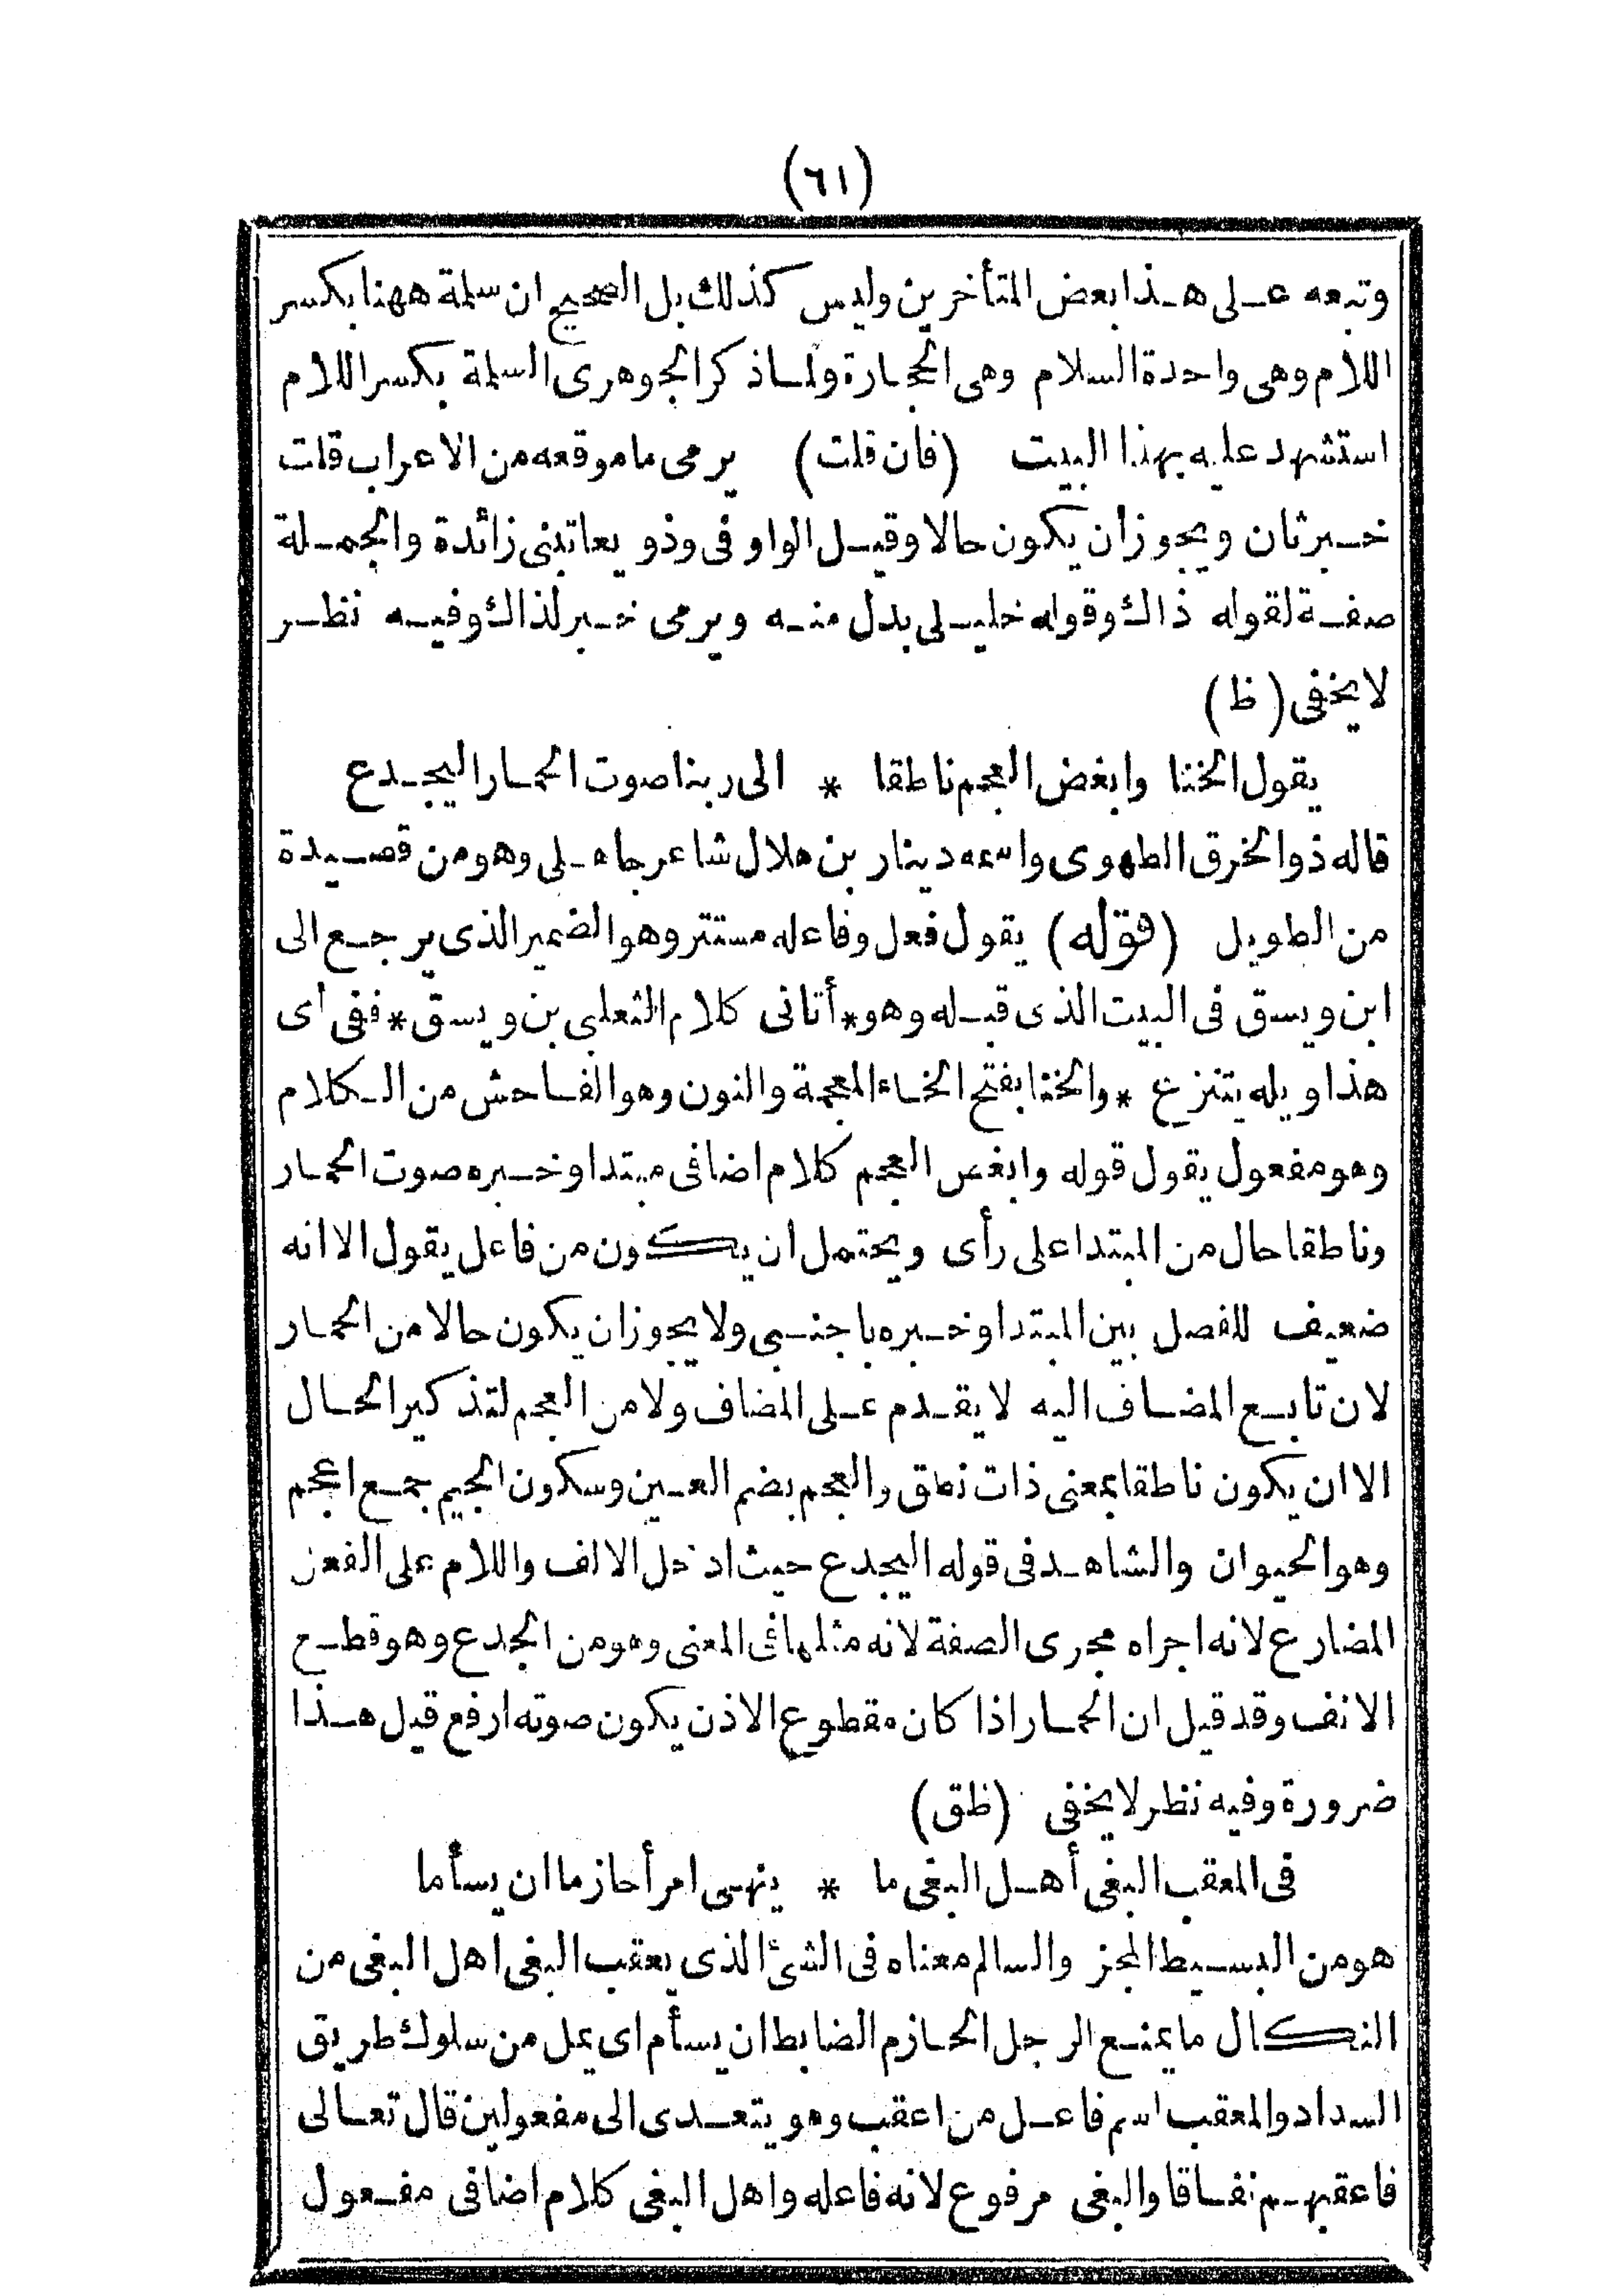 (٦١)
وتبعه على هذا بعض المتأخرين وليس كذلك بل الصحيح ان سلمة ههنا بكسر
اللام وهى واحدة السلام وهى الحجارة ولما ذكر الجوهرى السلمة بكسر اللام
استشهد عليه بهذا البيت (فان قلت) يرمى ما موقعه من الاعراب قلت
خبر ثان ويجوز أن يكون حالا وقيل الواو فى وذو يعاتبنى زائدة والجملة
صفة لقوله ذاك وقوله خليلى بدل منه ويرمى خبر لذاك وفيه نظر
لا يخفى (ظ)
يقول الخنا وابغض العجم ناطقا * الى ربنا صوت الحمار اليجدع
قاله ذو الخرق الطهوى واسمه دينار بن هلال شاعر جاهلى وهو من قصيدة
من الطويل (قوله) يقول فعل وفاعله مستتر وهو الضمير الذى يرجع الى
ابن ويسق فى البيت الذى قبله وهو * أتانى كلام الثعلبى بن ويسق * ففى أى
هذا ويله يتنزع * والخنا بفتح الخاء المعجمة والنون وهو الفاحش من الكلام
وهو مفعول يقول قوله وابغض العجم كلام اضافى مبتدا وخبره صوت الحمار
وناطقا حال من المبتدا على رأى ويحتمل ان يكون من فاعل يقول الا انه
ضعيف للفصل بين المبتدا وخبره باجنبى ولا يجوز ان يكون حالا من الحمار
لان تابع المضاف اليه لا يقدم على المضاف ولا من العجم لتذكير الحال
الا ان يكون ناطقا بمعنى ذات نطق والعجم بضم العين وسكون الجيم جمع اعجم
وهو الحيوان والشاهد فى قوله اليجدع حيث ادخل الالف واللام على الفعل
المضارع لانه اجراه مجرى الصفة لانه مثلها فى المعنى وهو من الجدع وهو قطع
الانف وقد قيل ان الحمار اذا كان مقطوع الاذن يكون صوته ارفع قيل هذا
ضرورة وفيه نظر لا يخفى (ظق)
فى المعقب البغى أهل البغى ما * ينهى امرأ حازما ان يسأما
هو من البسيط المجز والسالم معناه فى الشئ الذى يعقب البغى اهل البغى من
النكال ما يمنع الرجل الحازم الضابط ان يسأم اى يمل من سلوك طريق
السداد والمعقب اسم فاعل من اعقب وهو يتعدى الى مفعولين قال تعالى
فاعقبهم نفاقا والبغى مرفوع لانه فاعله واهل البغى كلام اضافى مفعول